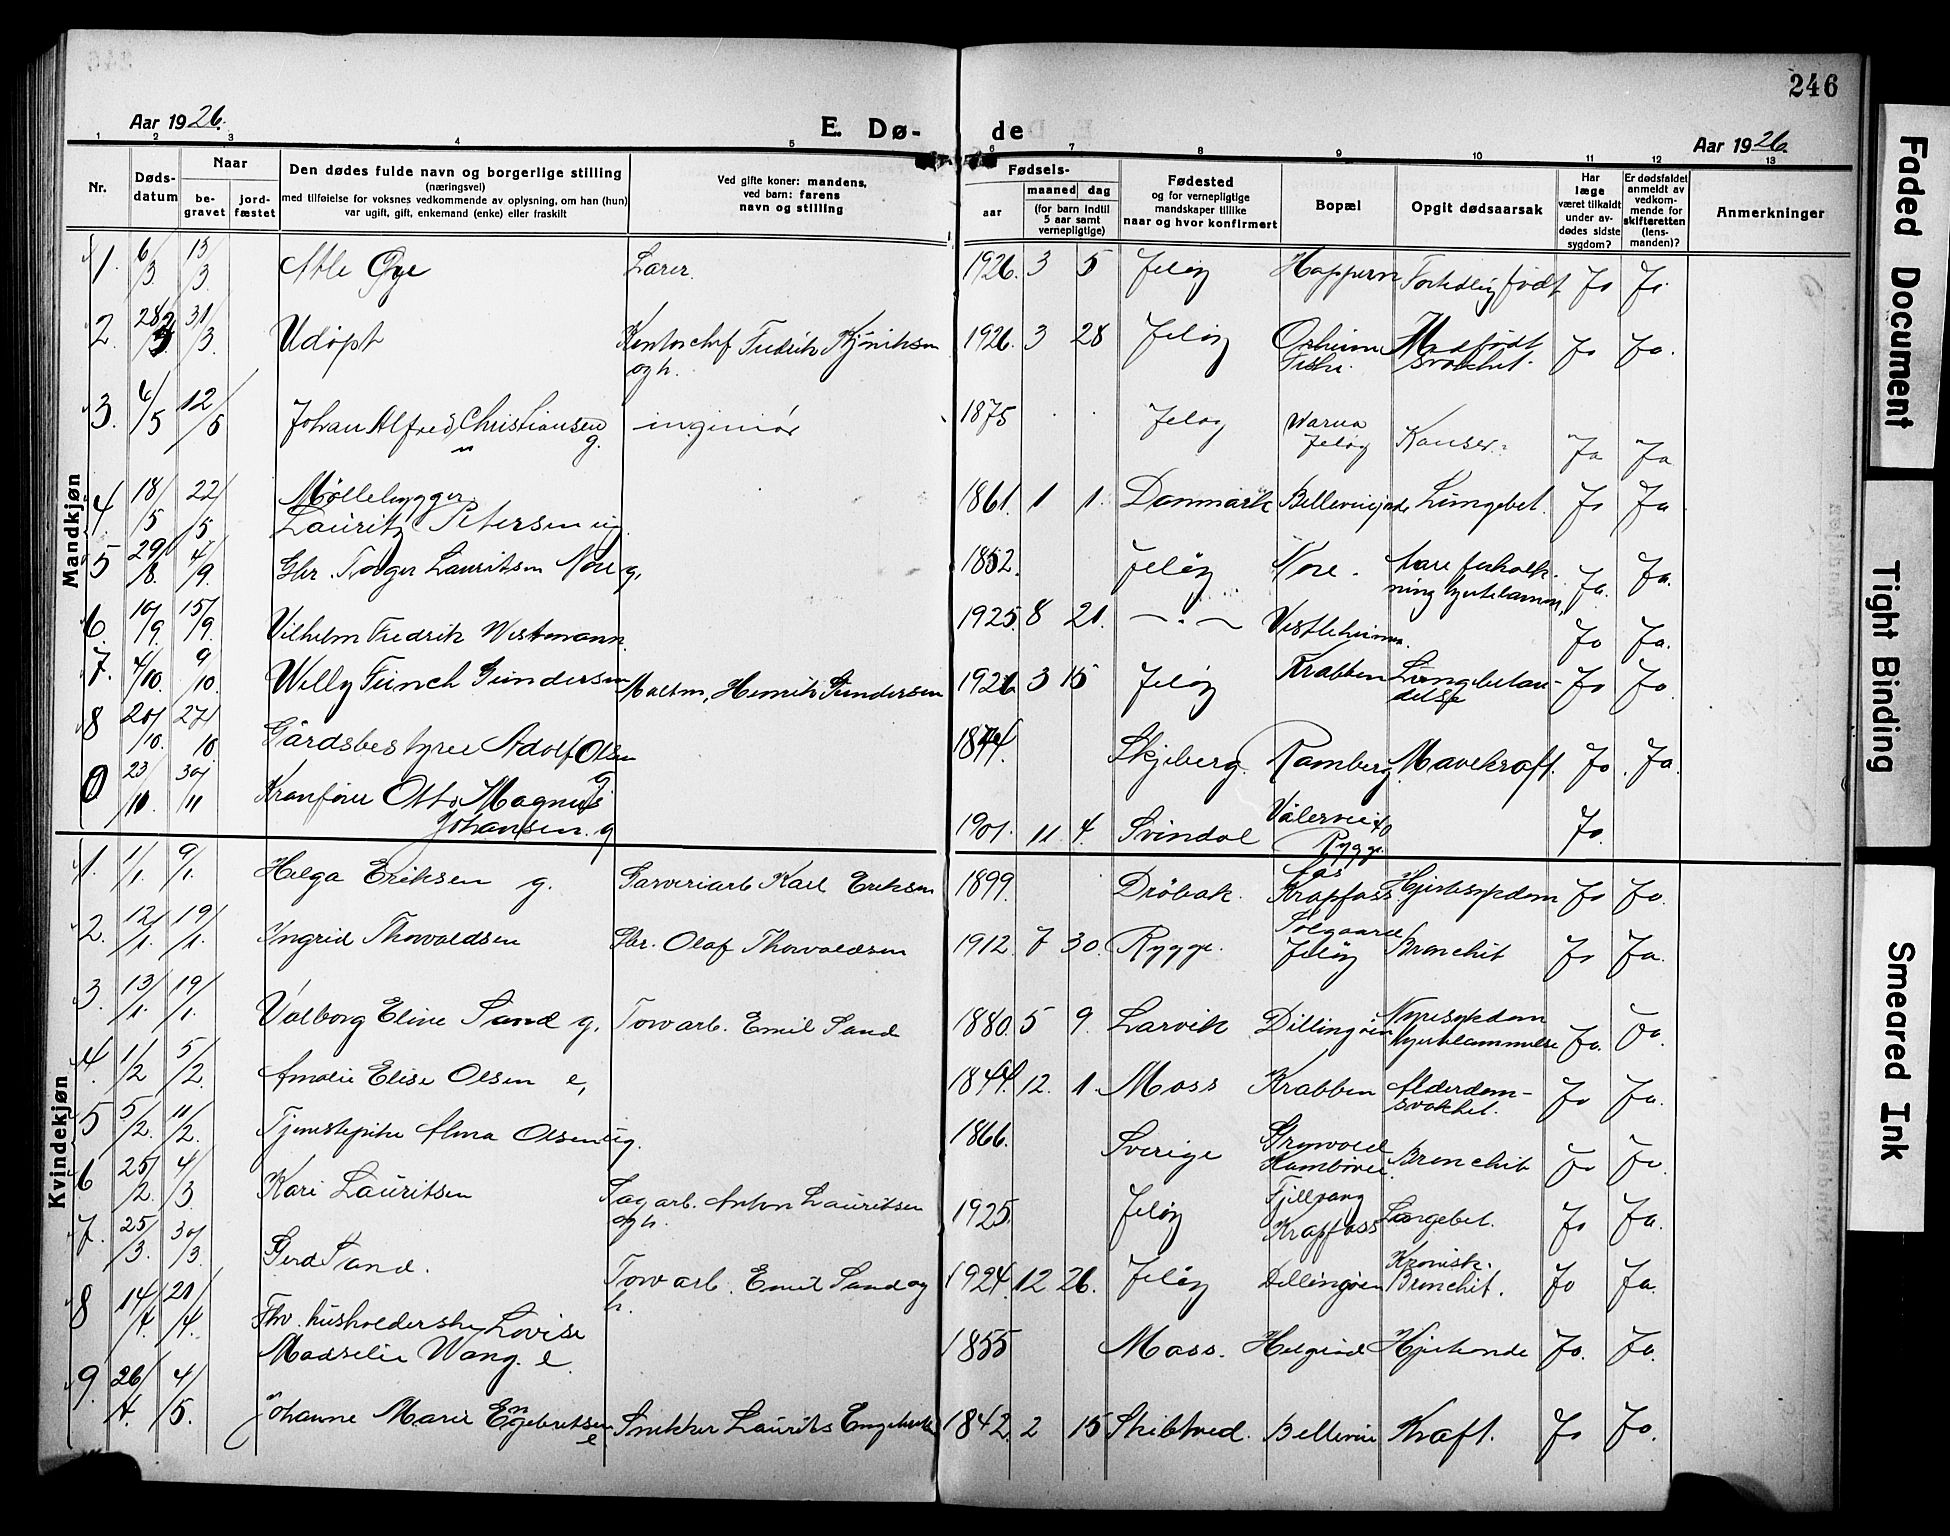 246
Aar 1926.
E. Dø-
de
Aar 1926.
1 2 3 4 5 6 7 8 9 10 11 12 13
Nr.
Døds-
datum
Naar
be-
gravet
jord-
fæstet
Den dødes fulde navn og borgerlige stilling
(næringsvei)
med tilføielse for voksnes vedkommende av oplysning, om han (hun)
var ugift, gift, enkemand (enke) eller fraskilt
Ved gifte koner: mandens,
ved barn: farens
navn og stilling
Fødsels-
aar
maaned
dag
(for barn indtil
5 aar samt
vernepligtige)
Fødested
og for vernepligtige
mandskaper tillike
naar og hvor konfirmert
Bopæl
Opgit dødsaarsak
Har
læge
været tilkaldt
under av-
dødes sidste
sygdom?
Er dødsfaldet
anmeldt av
vedkom-
mende for
skifteretten
(lens-
manden)?
Anmerkninger
Mandkjøn
1. 6/3 13/3 Atle Øye Lærer. 1926. 3 5 Jeløy Happern Fortidlig født Ja Ja
2. 28/3. 31/3 Udøpt Kontorchef Fredrik Kjøniksen 1926. 3 28 Jeløy Medfødt Ja Ja.
og h. svakhet.
3. 4/5 12/5 Johan Alfred Christiansen g. ingeniør 1875 Jeløy Varna Kanser. Ja Ja
Jeløy
4. 18/5 22/5 Møllebygger
Lauritz Petersen ug. 1861. 1 1. Danmark Lungebet. Ja Ja
5 29/8. 4/9. Gbr. Torger Lauritsen Nore g, 1852. Jeløy Nore. Aareforkalk-
ning hjertelamm. Ja. Ja.
6. 10/9. 15/9. Vilhelm Fredrik Westmann. 1925. 8 21. — " — Vestleheimen. Ja Ja.
7. 4/10. 9/10. Willy Funch Gundersen Malerm. Henrik Gundersen 1926 3 15 Jeløy Krabben Lungebetæn-
delse Ja Ja
8 20/10. 27/10. Gårdsbestyrer Adolf Olsen g 1874. Skjeberg. Ramberg. Mavekræft. Ja. Ja.
9 23/10 30/11 Kranfører Otto Magnus
Johansen. g 1901. 11 4. Svindal Vålervei 40
Rygge. Ja.
Kvindekjøn
1. 1/1. 9/1. Helga Eriksen g. Garveriarb Karl Eriksen 1899. Drøbak. Krapfoss Hjertesykdom Ja Ja.
2. 12/1. 19/1. Ingrid Thorvaldsen Gbr. Olaf Thorvaldsen 1912. 7 30. Rygge. Solgaard
Jeløy Bronchit Ja Ja.
3. 13/1. 19/1. Valborg Eline Sand g. Tomtarb. Emil Sand 1880. 5 9. Larvik Dillingøen Nyresykdom
hjertelammelse Ja. Ja.
4. 1/2 5/2. Amalie Elise Olsen e, 1844. 12. 1. Moss Krabben Alderdom-
svakhet. Ja Ja.
5 5/2. 11/2. Tjenestepike Alma Olsen ug. 1866. Sverige Bronchit Ja Ja.
6 25/2. 4/3 Kari Lauritsen Sagarb. Anton Lauritsen
og h. 1925. Jeløy Fjellvang
Krapfoss Lungebet. Ja Ja.
7. 25/3. 30/3 Gerd Sand. Tomtarb. Emil Sand og
h. 1924. 12 26. Jeløy Dillingøen Kronisk.
Bronchit. Ja Ja.
8 14/4. 21/4. Fhv. husholderske Lovise
Madselie Wang. e 1855 Moss. Helgerød Hjerteonde Ja. Ja.
9. 26/4. 4/5. Johanne Marie Engebretsen
e Snekker Laurits Engebretsen 1842. 2 15 Skibtved. Bellevue Kræft. Ja Ja.
Faded Document
Tight Binding
Smeared Ink